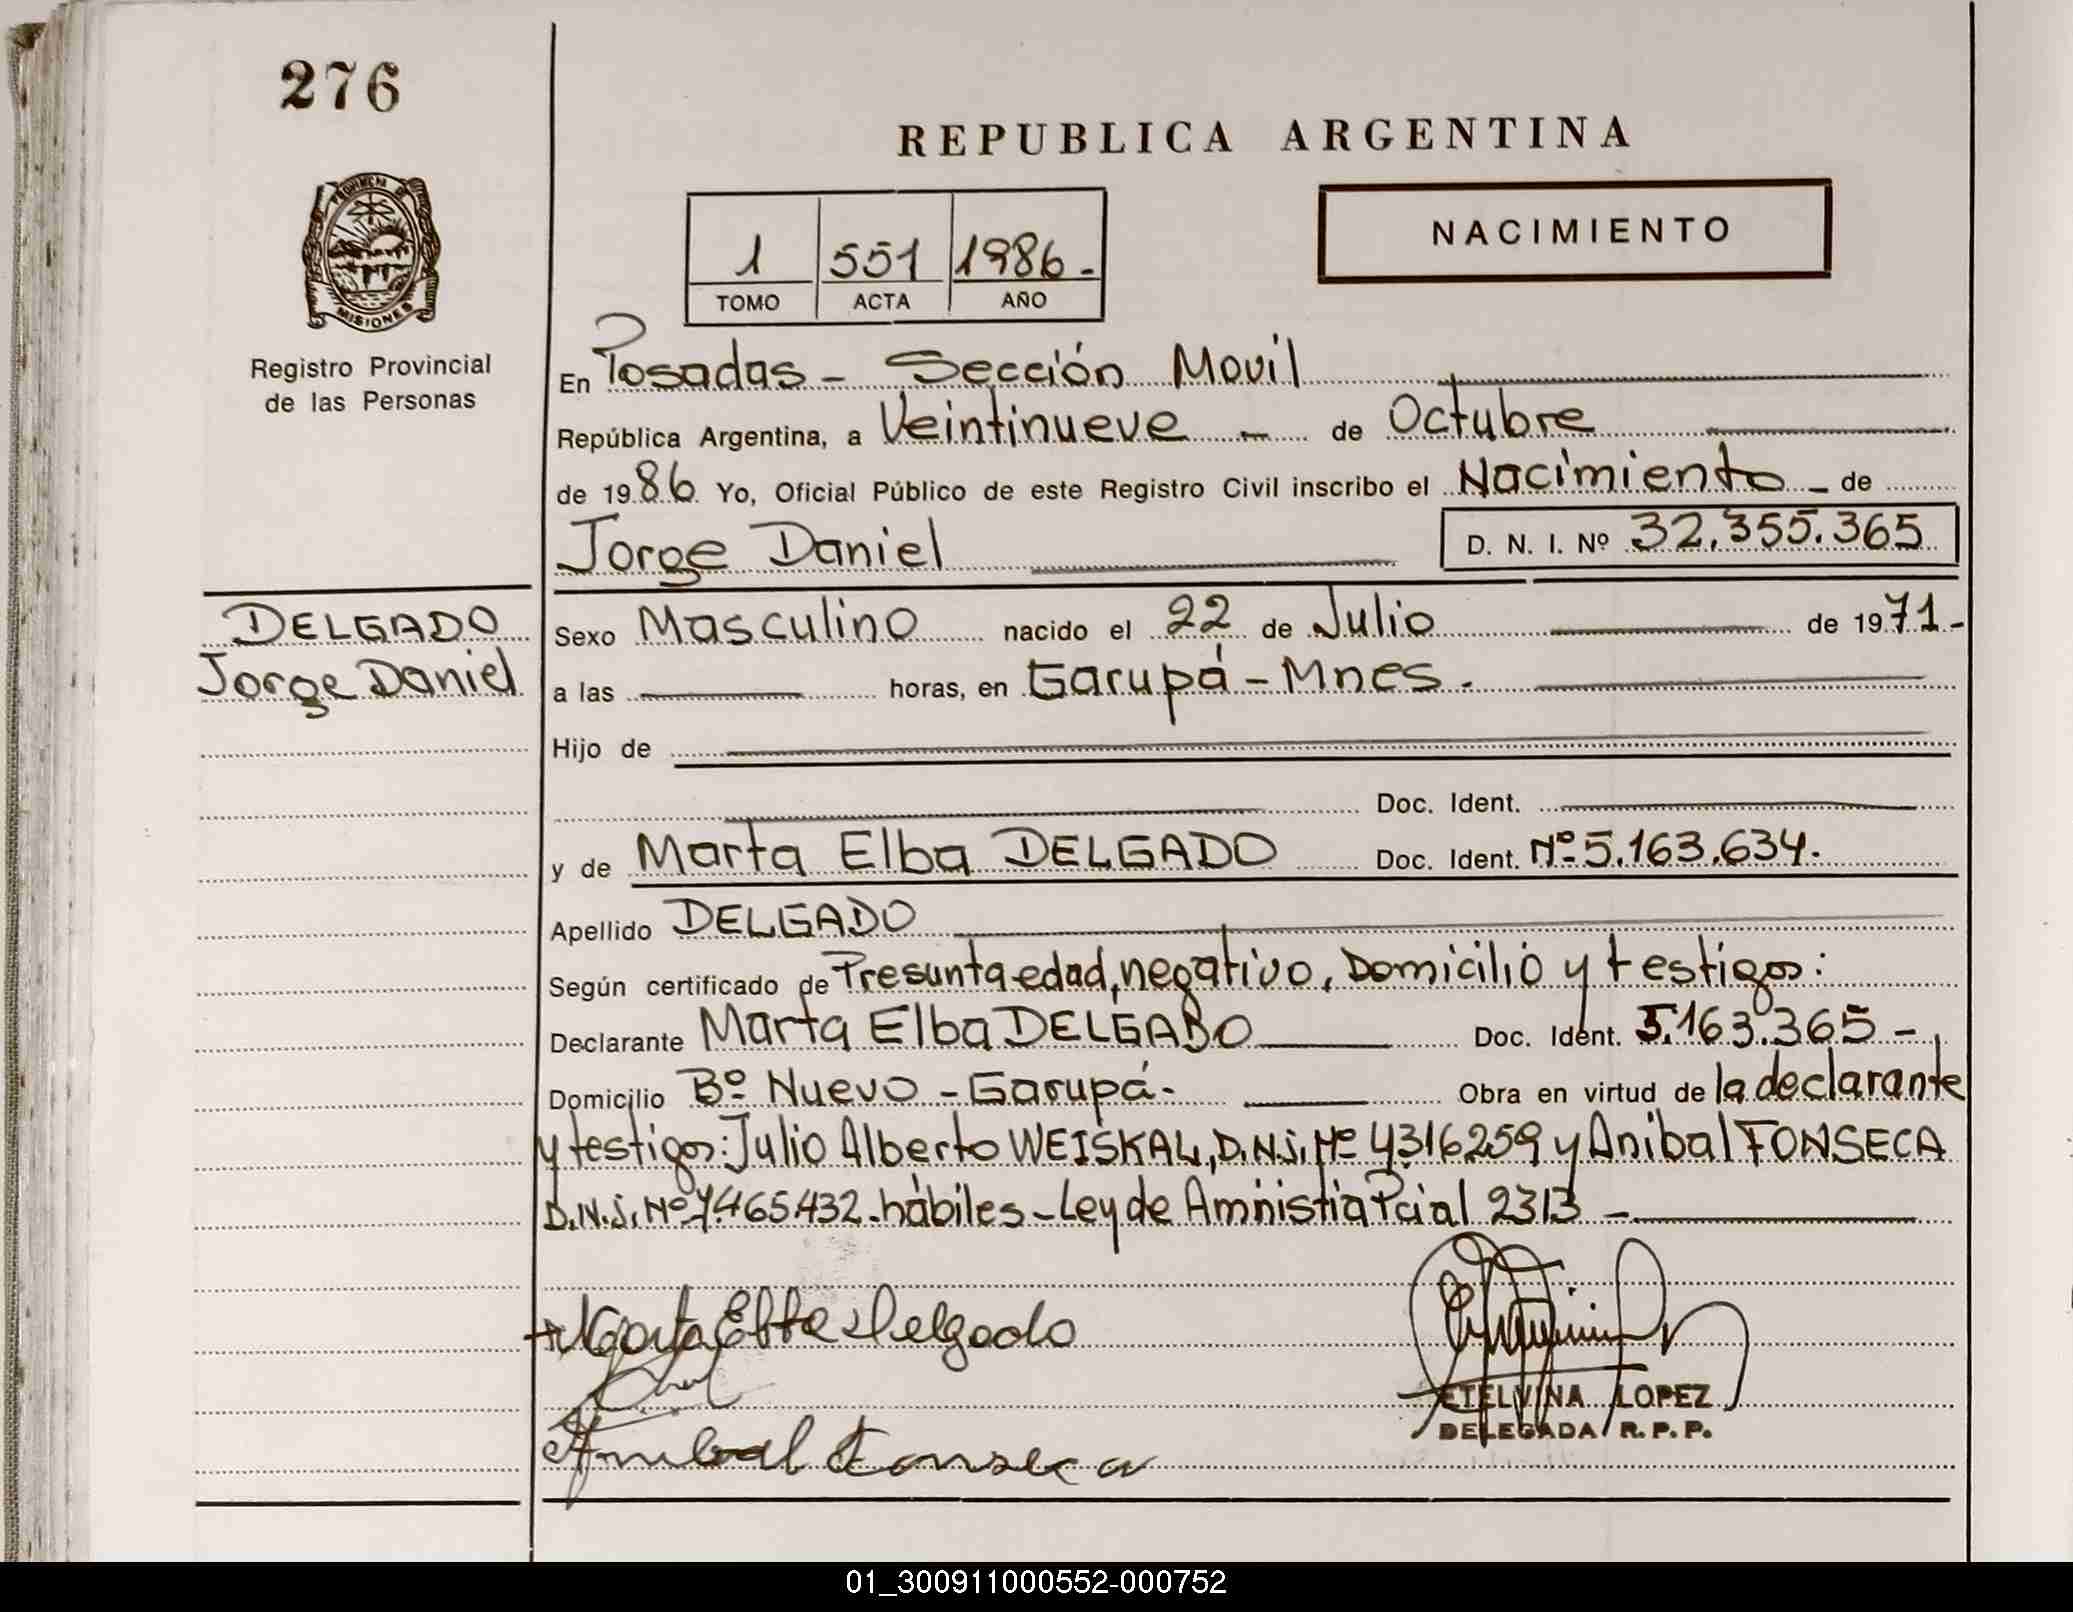 276
REPUBLICA ARGENTINA
NACIMIENTO
1 551 1986.-
TOMO ACTA AÑO
PROVINCIA DE MISIONES
Registro Provincial
de las Personas
En Posadas - Sección Movil
República Argentina, a Veintinueve - de Octubre
de 1986 Yo, Oficial Público de este Registro Civil inscribo el Nacimiento - de
Jorge Daniel D. N. I. Nº 32.355.365
DELGADO
Jorge Daniel
Sexo Masculino nacido el 22 de Julio de 1971.-
a las horas, en Garupá - Mnes.
Hijo de
Doc. Ident.
y de Marta Elba DELGADO Doc. Ident. Nº 5.163.634.
Apellido DELGADO
Según certificado de Presunta edad, negativo, Domicilio y testigos:
Declarante Marta Elba DELGADO Doc. Ident. 5.163.365 -
Domicilio Bº Nuevo - Garupá- Obra en virtud de la declarante
y testigos: Julio Alberto WEISKAL, D.N.I. Nº 4316259 y Anibal FONSECA
D.N.I. Nº 7.465.432. hábiles - Ley de Amnistia Pcial 2313 -
Marta Elba Delgado
Anibal Fonseca
ETELVINA LOPEZ
DELEGADA R. P. P.
01_300911000552-000752